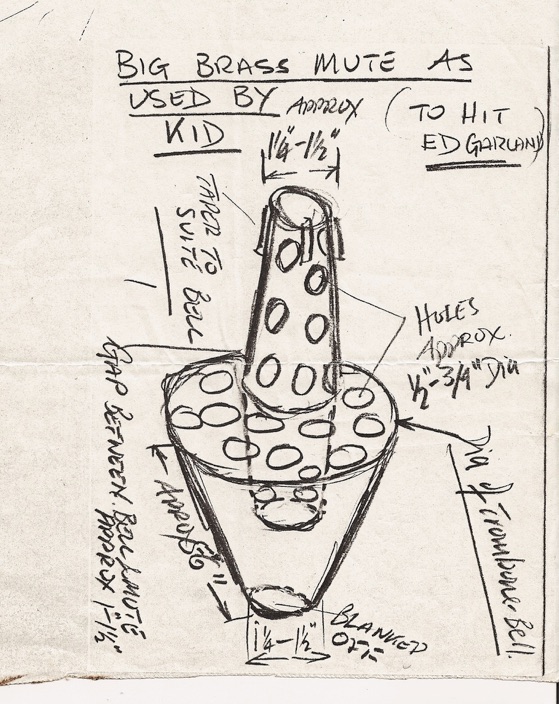 BIG BRASS MUTE AS
USED BY
KID
(TO HIT
ED GARLAND)
APPROX
1¼"-1½"
TAPER TO
SUITE BELL
HOLES
APPROX.
½"-3/4" Dia
GAP BETWEEN BELL & MUTE
APPROX 1"-1½"
Dia of Trombone Bell.
APPROX 6"
BLANKED
OFF
1¼-1½"